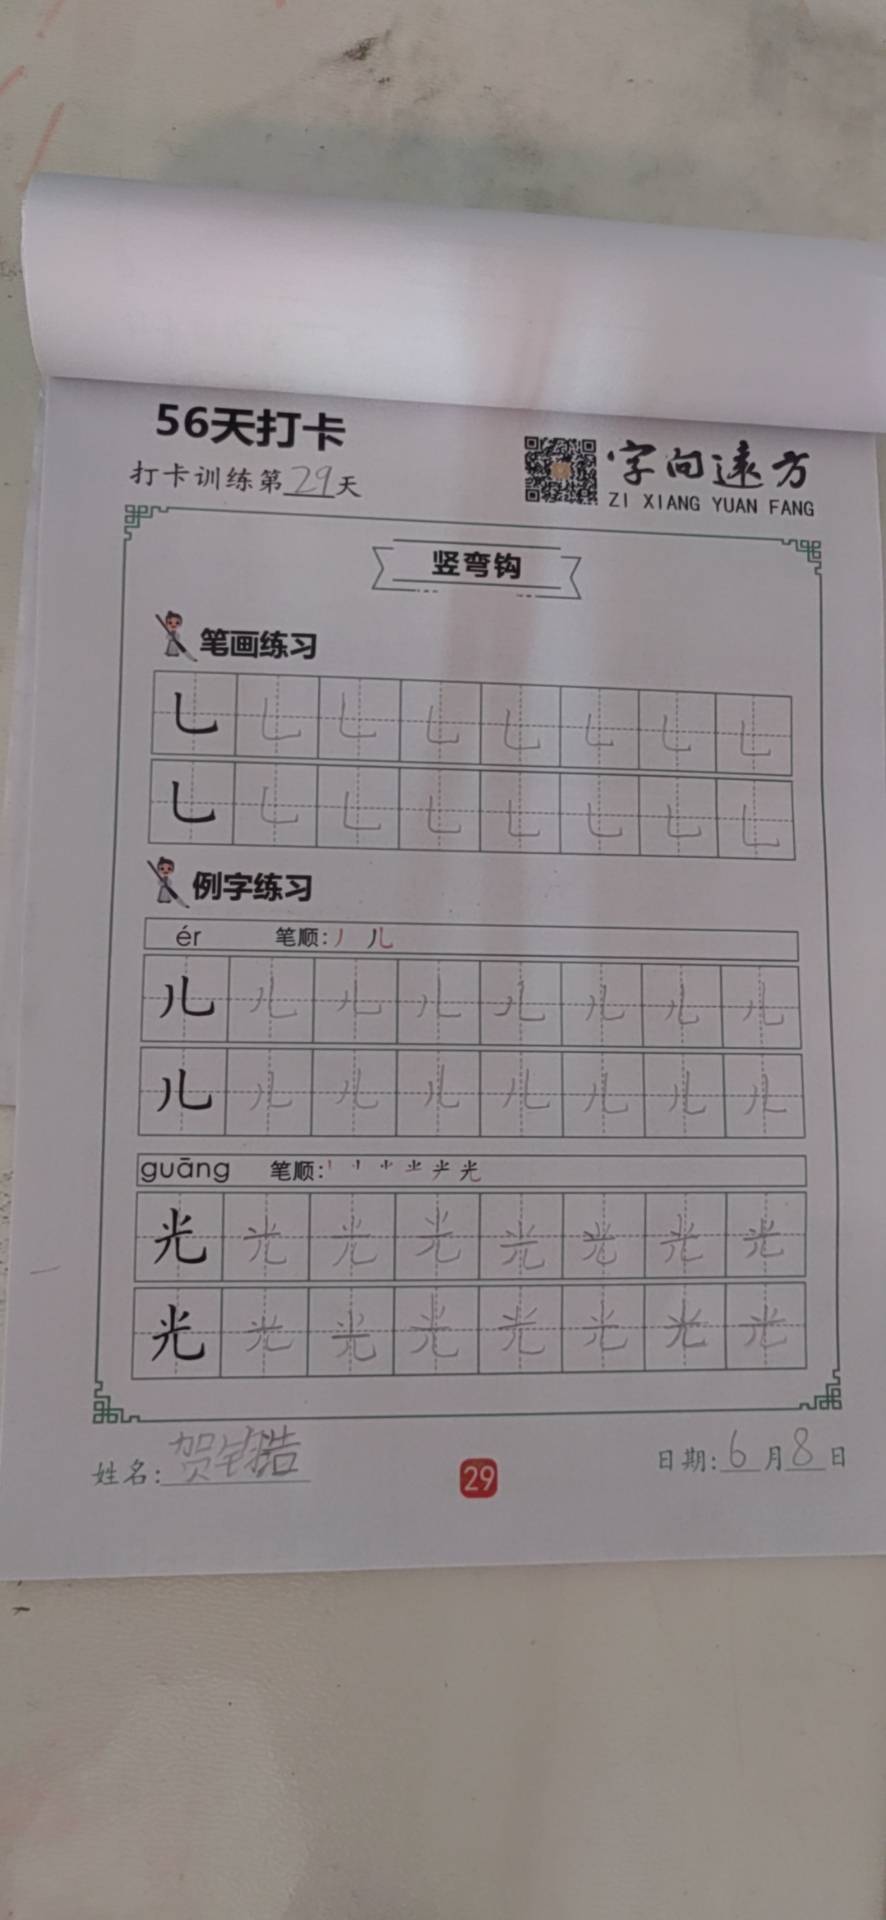 56天打卡
打卡训练第29天
字向远方
ZI XIANG YUAN FANG
竖弯钩
笔画练习
乚 乚 乚 乚 乚 乚 乚 乚
乚 乚 乚 乚 乚 乚 乚 乚
例字练习
ér 笔顺:丿 儿
儿 儿 儿 儿 儿 儿 儿 儿
儿 儿 儿 儿 儿 儿 儿 儿
guāng 笔顺: 光
光 光 光 光 光 光 光 光
光 光 光 光 光 光 光 光
姓名:贺
29
日期:6月8日